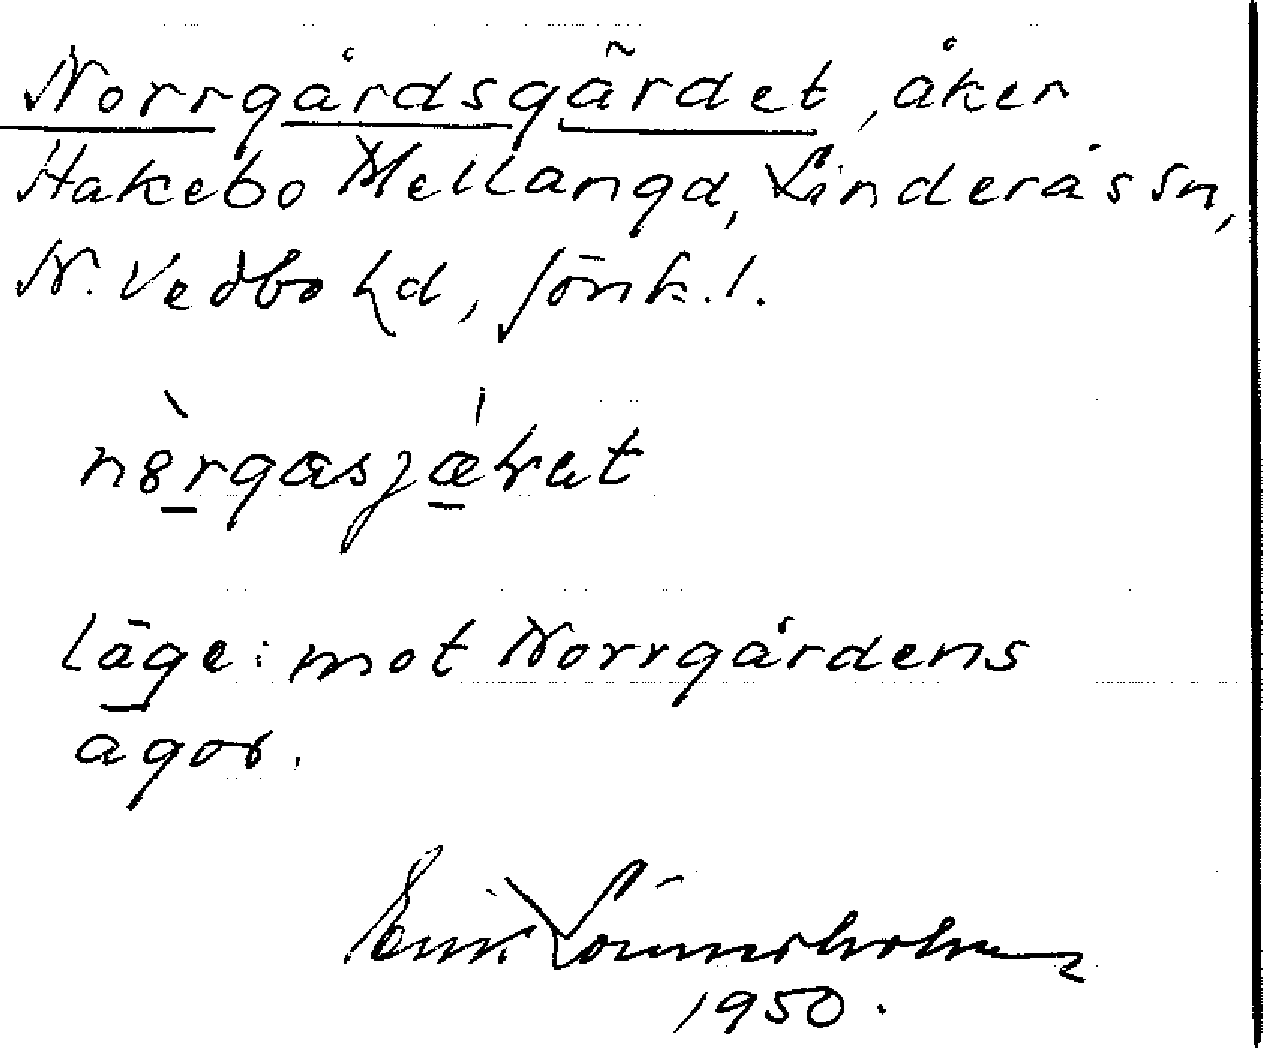 Norrgårdsgärdet, åker
Hakebo Mellangd, Linderås sn,
N. Vedbo hd, Jönk. l.
Läge: mot Norrgårdens
ägor.
Erik Lönnerholm
1950.